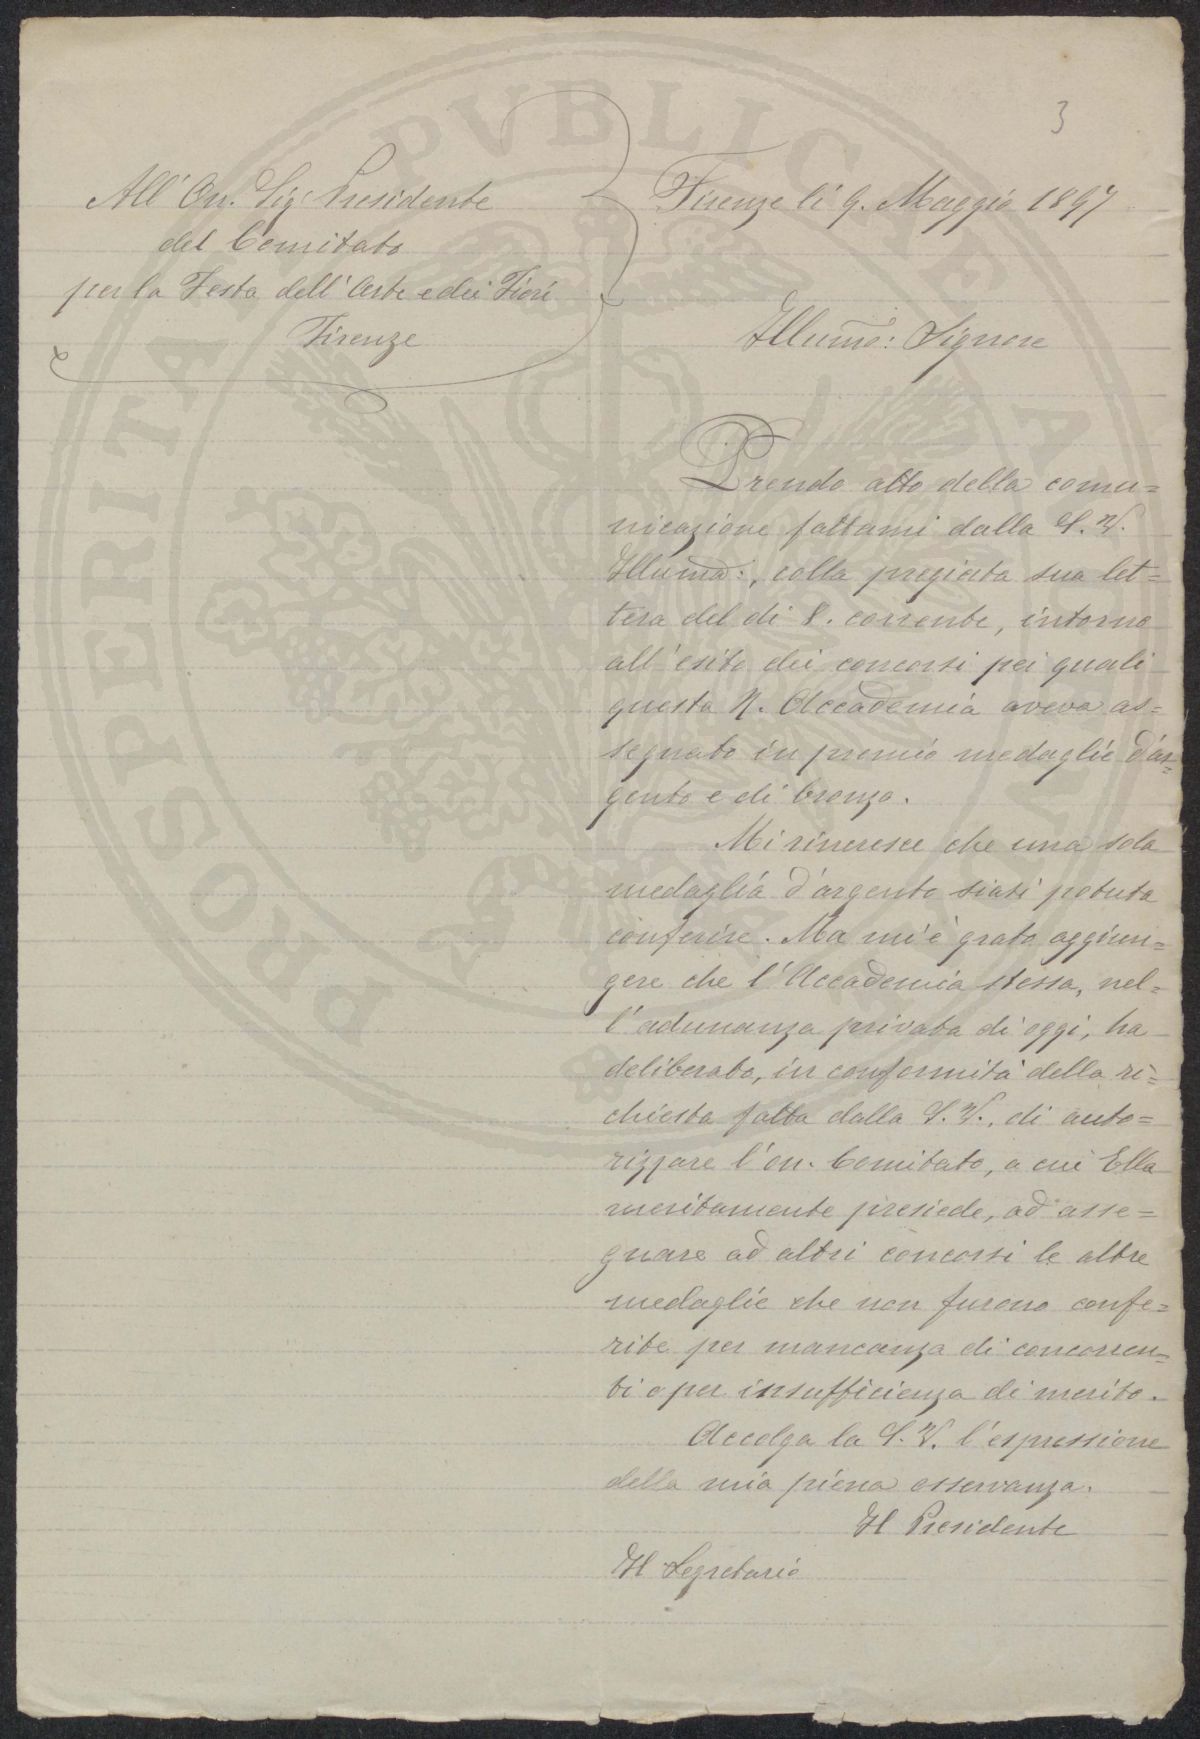 3
All'On. Sig. Presidente
del Comitato
per la Festa dell'Arte e dei Fiori
Firenze
Firenze lì 9. Maggio 1897
Illumo: Signore
Prendo atto della comu=
nicazione fattami dalla S. V.
Illuma:, colla pregiata sua let=
tera del dì 8. corrente, intorno
all'esito dei concorsi pei quali
questa R. Accademia aveva as=
segnato in premio medaglie d'ar=
gento e di bronzo.
Mi rincresce che una sola
medaglia d'argento siasi potuta
conferire. Ma mi è grato aggiun=
gere che l'Accademia stessa, nel=
l'adunanza privata di oggi, ha
deliberato, in conformità della ri=
chiesta fatta dalla S. V., di auto=
rizzare l'on. Comitato, a cui Ella
meritamente presiede, ad asse=
gnare ad altri concorsi le altre
medaglie che non furono confe=
rite per mancanza di concorren=
ti o per insufficienza di merito.
Accolga la S. V. l'espressione
della mia piena osservanza.
Il Presidente
Il Segretario
PROSPERITATI PVBLICAE AVGENDAE